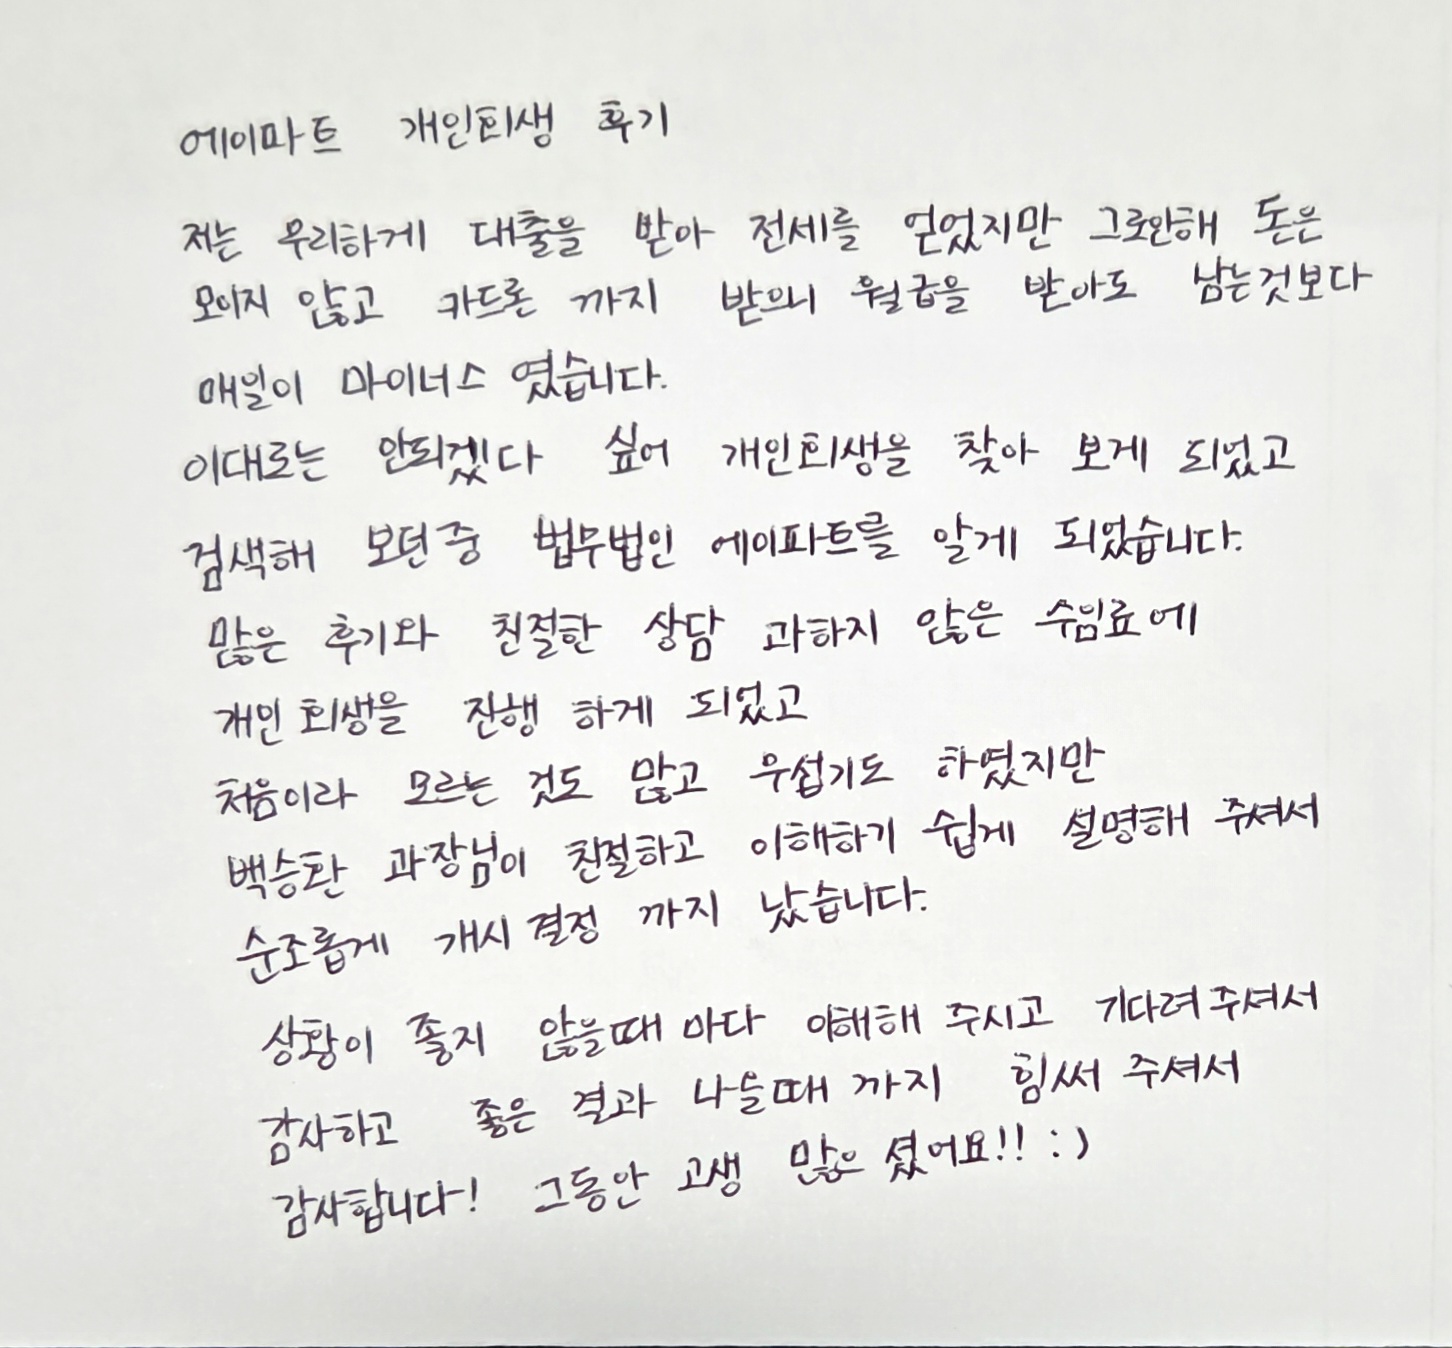 에이파트 개인회생 후기
저는 무리하게 대출을 받아 전세를 얻었지만 그로안해 돈은
모이지 않고 카드론 까지 받으니 월급을 받아도 남는것보다
매일이 마이너스 였습니다.
이대로는 안되겠다 싶어 개인회생을 찾아 보게 되었고
검색해 보던중 법무법인 에이파트를 알게 되었습니다.
많은 후기와 친절한 상담 과하지 않은 수임료에
개인회생을 진행 하게 되었고
처음이라 모르는 것도 많고 무섭기도 하였지만
백승환 과장님이 친절하고 이해하기 쉽게 설명해 주셔서
순조롭게 개시결정 까지 났습니다.
상황이 좋지 않을때 마다 이해해 주시고 기다려주셔서
감사하고 좋은 결과 나올때 까지 힘써 주셔서
감사합니다! 그동안 고생 많으셨어요!! :)